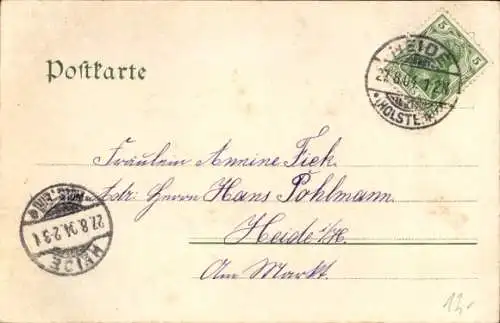 5 5
HEIDE
27.8.04. 1-2 N
* (HOLSTEIN)
Postkarte
Fräulein Annine Fick.
Adr: Herrn Hans Pohlmann.
Heide i/H.
Am Markt.
(HOLSTEIN) *
27.8.04.2-3 N
HEIDE
12,-